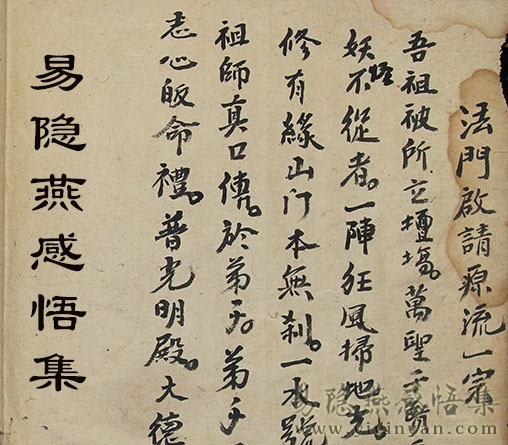 法門啟請源流一宗
吾祖被所立壇塲。萬聖千
妖怪不從者。一陣狂風掃地
修有緣山门本無刹。一水號
祖師真口傳。於弟子。弟子
志心皈命禮。普光明殿。大德
易隐燕感悟集
易隐燕感悟集